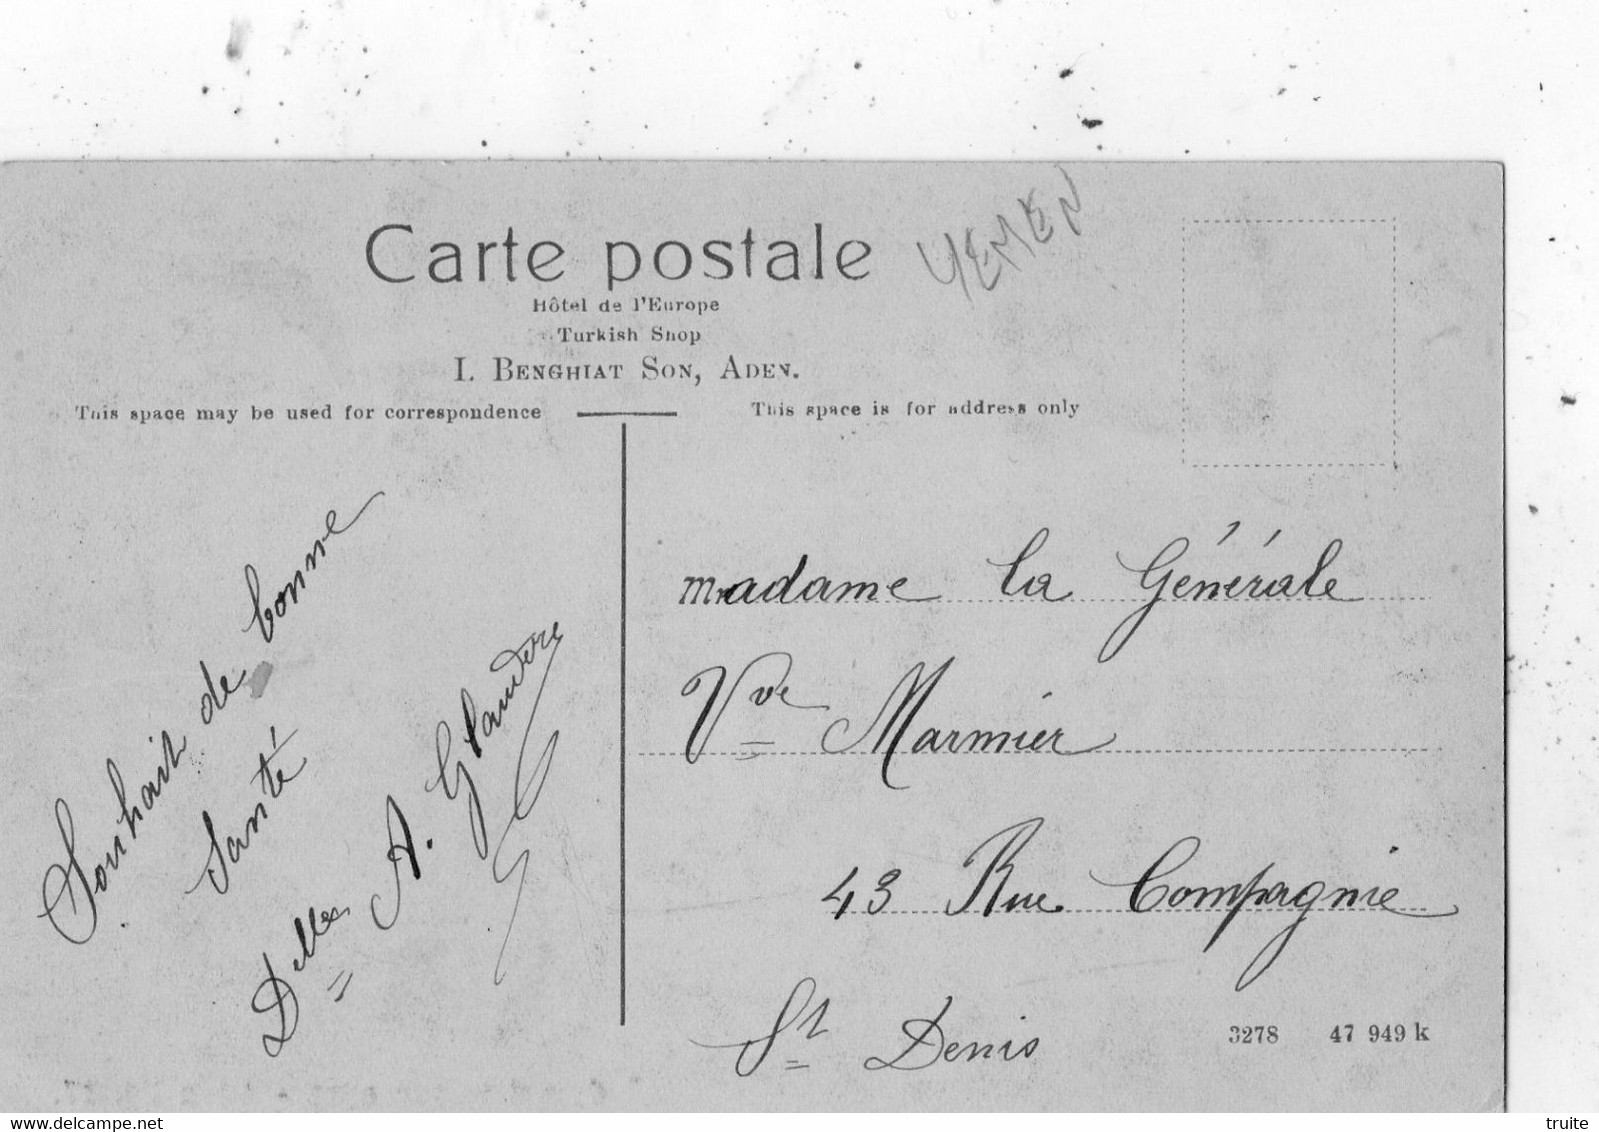 Carte postale
YEMEN
Hôtel de l'Europe
Turkish Shop
I. BENGHIAT SON, ADEN.
This space may be used for correspondence
This space is for address only
Souhait de bonne
Santé
Delles A.
madame la Générale
Vve Marmier
43 Rue Compagnie
St Denis
3278 47 949 k
www.delcampe.net
truite